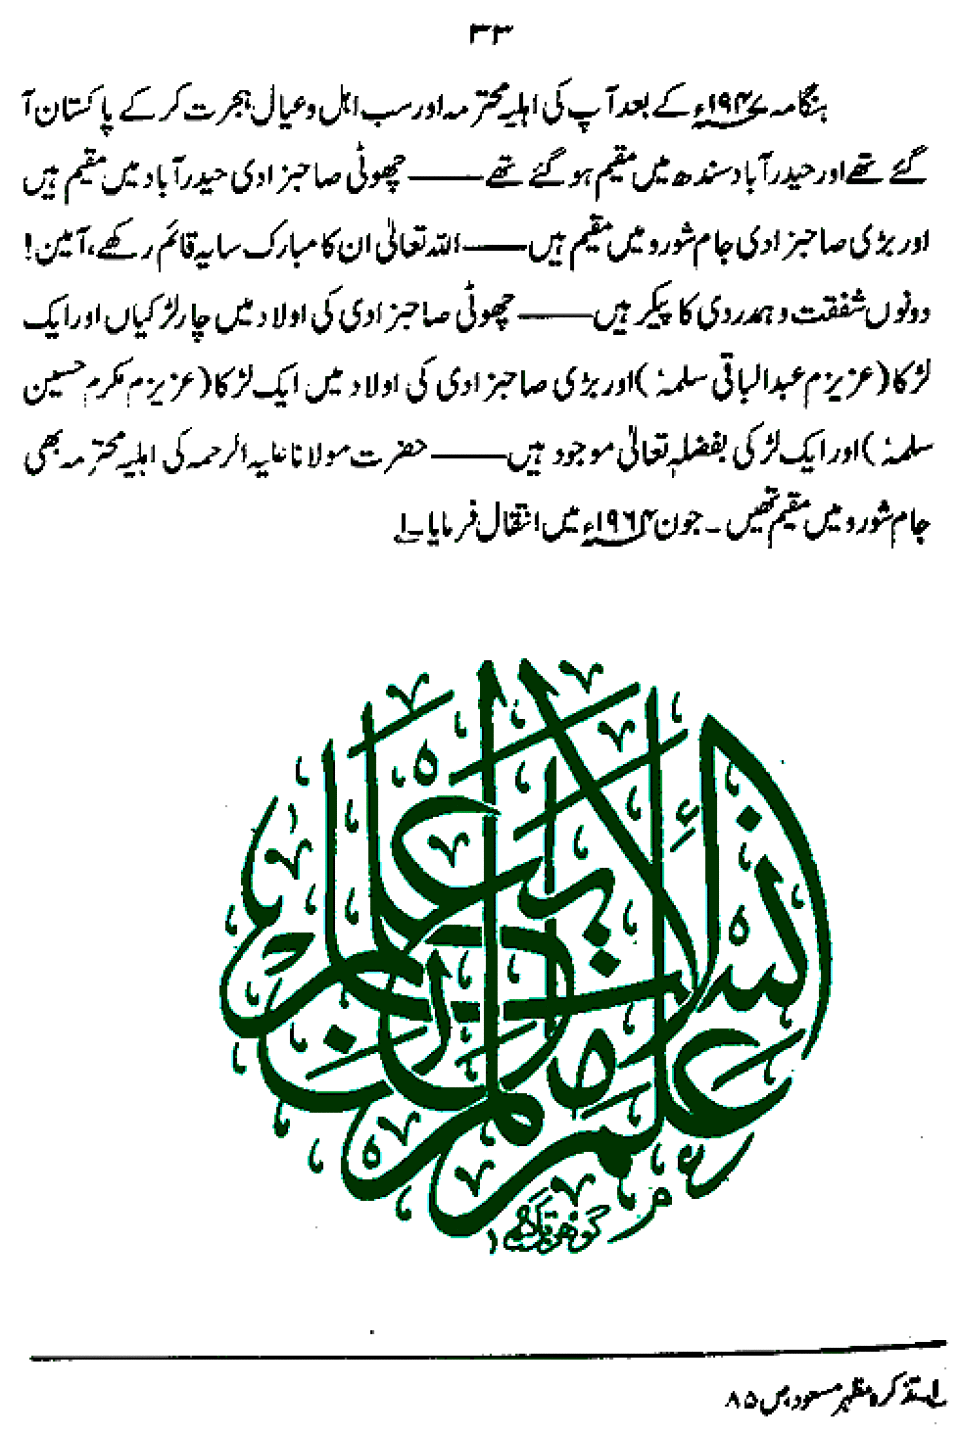 ۳۳
ہنگامہ ۱۹۴۷ء کے بعد آپ کی اہلیہ محترمہ اور سب اہل و عیال ہجرت کر کے پاکستان آ
گئے تھے اور حیدرآباد سندھ میں مقیم ہو گئے تھے —— چھوٹی صاحبزادی حیدرآباد میں مقیم ہیں
اور بڑی صاحبزادی جام شورو میں مقیم ہیں —— اللہ تعالیٰ ان کا مبارک سایہ قائم رکھے، آمین!
دونوں شفقت و ہمدردی کا پیکر ہیں —— چھوٹی صاحبزادی کی اولاد میں چار لڑکیاں اور ایک
لڑکا (عزیزم عبدالباقی سلمہٗ) اور بڑی صاحبزادی کی اولاد میں ایک لڑکا (عزیزم مکرم حسین
سلمہٗ) اور ایک لڑکی بفضلہٖ تعالیٰ موجود ہیں —— حضرت مولانا علیہ الرحمہ کی اہلیہ محترمہ بھی
جام شورو میں مقیم تھیں ۔ جون ۱۹۶۴ء میں انتقال فرمایا۔ ۱
علم الانسان ما لم يعلم
۱ تذکرہ مظہر مسعود، ص ۸۵